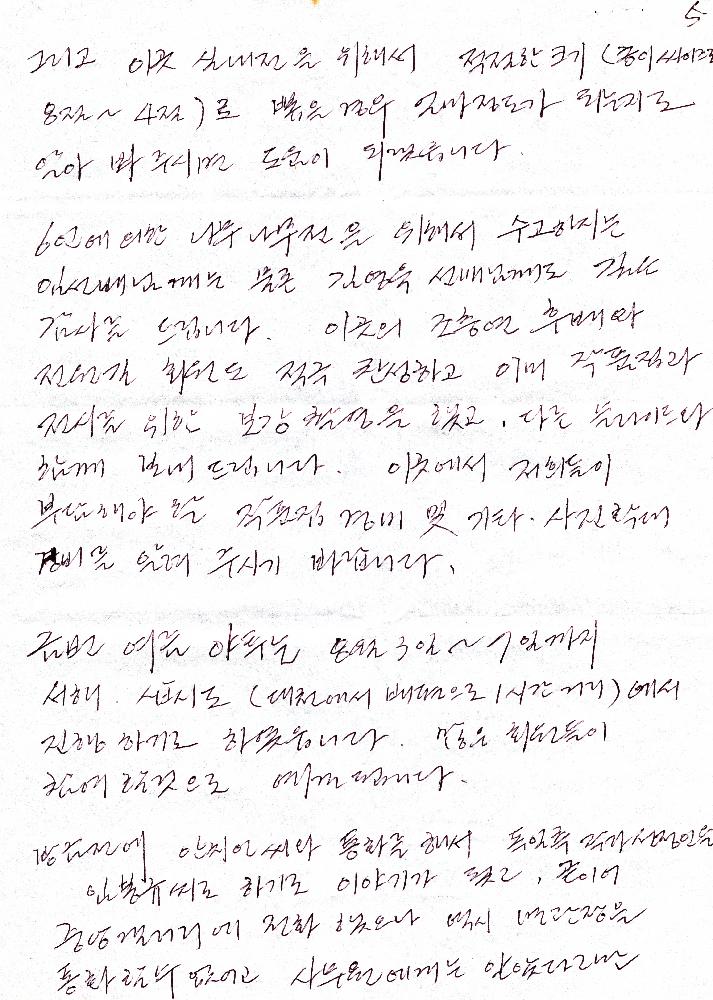 5
그리고 이곳 실내전을 위해서 적절한 크기 (종이싸이즈로
8절~ 4절)로 뽑을 경우 얼마정도가 되는지도
알아 봐 주시면 도움이 되겠습니다.
6인에 의한 나무 나무전을 위해서 수고하시는
임선배님께는 물론 김영욱 선배님께도 깊은
감사를 드립니다. 이곳의 조흥연 후배와
전원길 회원도 적극 찬성하고 이미 작품집과
전시를 위한 보강 촬영을 했고, 다른 슬라이드와
함께 보내 드립니다. 이곳에서 저희들이
부담해야 할 작품집 경비 및 기타. 사진확대
경비를 알려 주시기 바랍니다.
금번 여름 야투는 8월 3일~ 7일까지
서해 삽시도 (대천에서 배편으로 1시간 거리)에서
진행하기로 하였습니다. 많은 회원들이
참여 할것으로 여겨 집니다.
방금전에 안치인씨와 통화를 해서 독일쪽 작가선정인을
임봉규씨로 하기로 이야기가 됐고, 곧이어
중앙갤러리에 전화 했으나 역시 관장을
통화 할수 없었고 사무원에게는